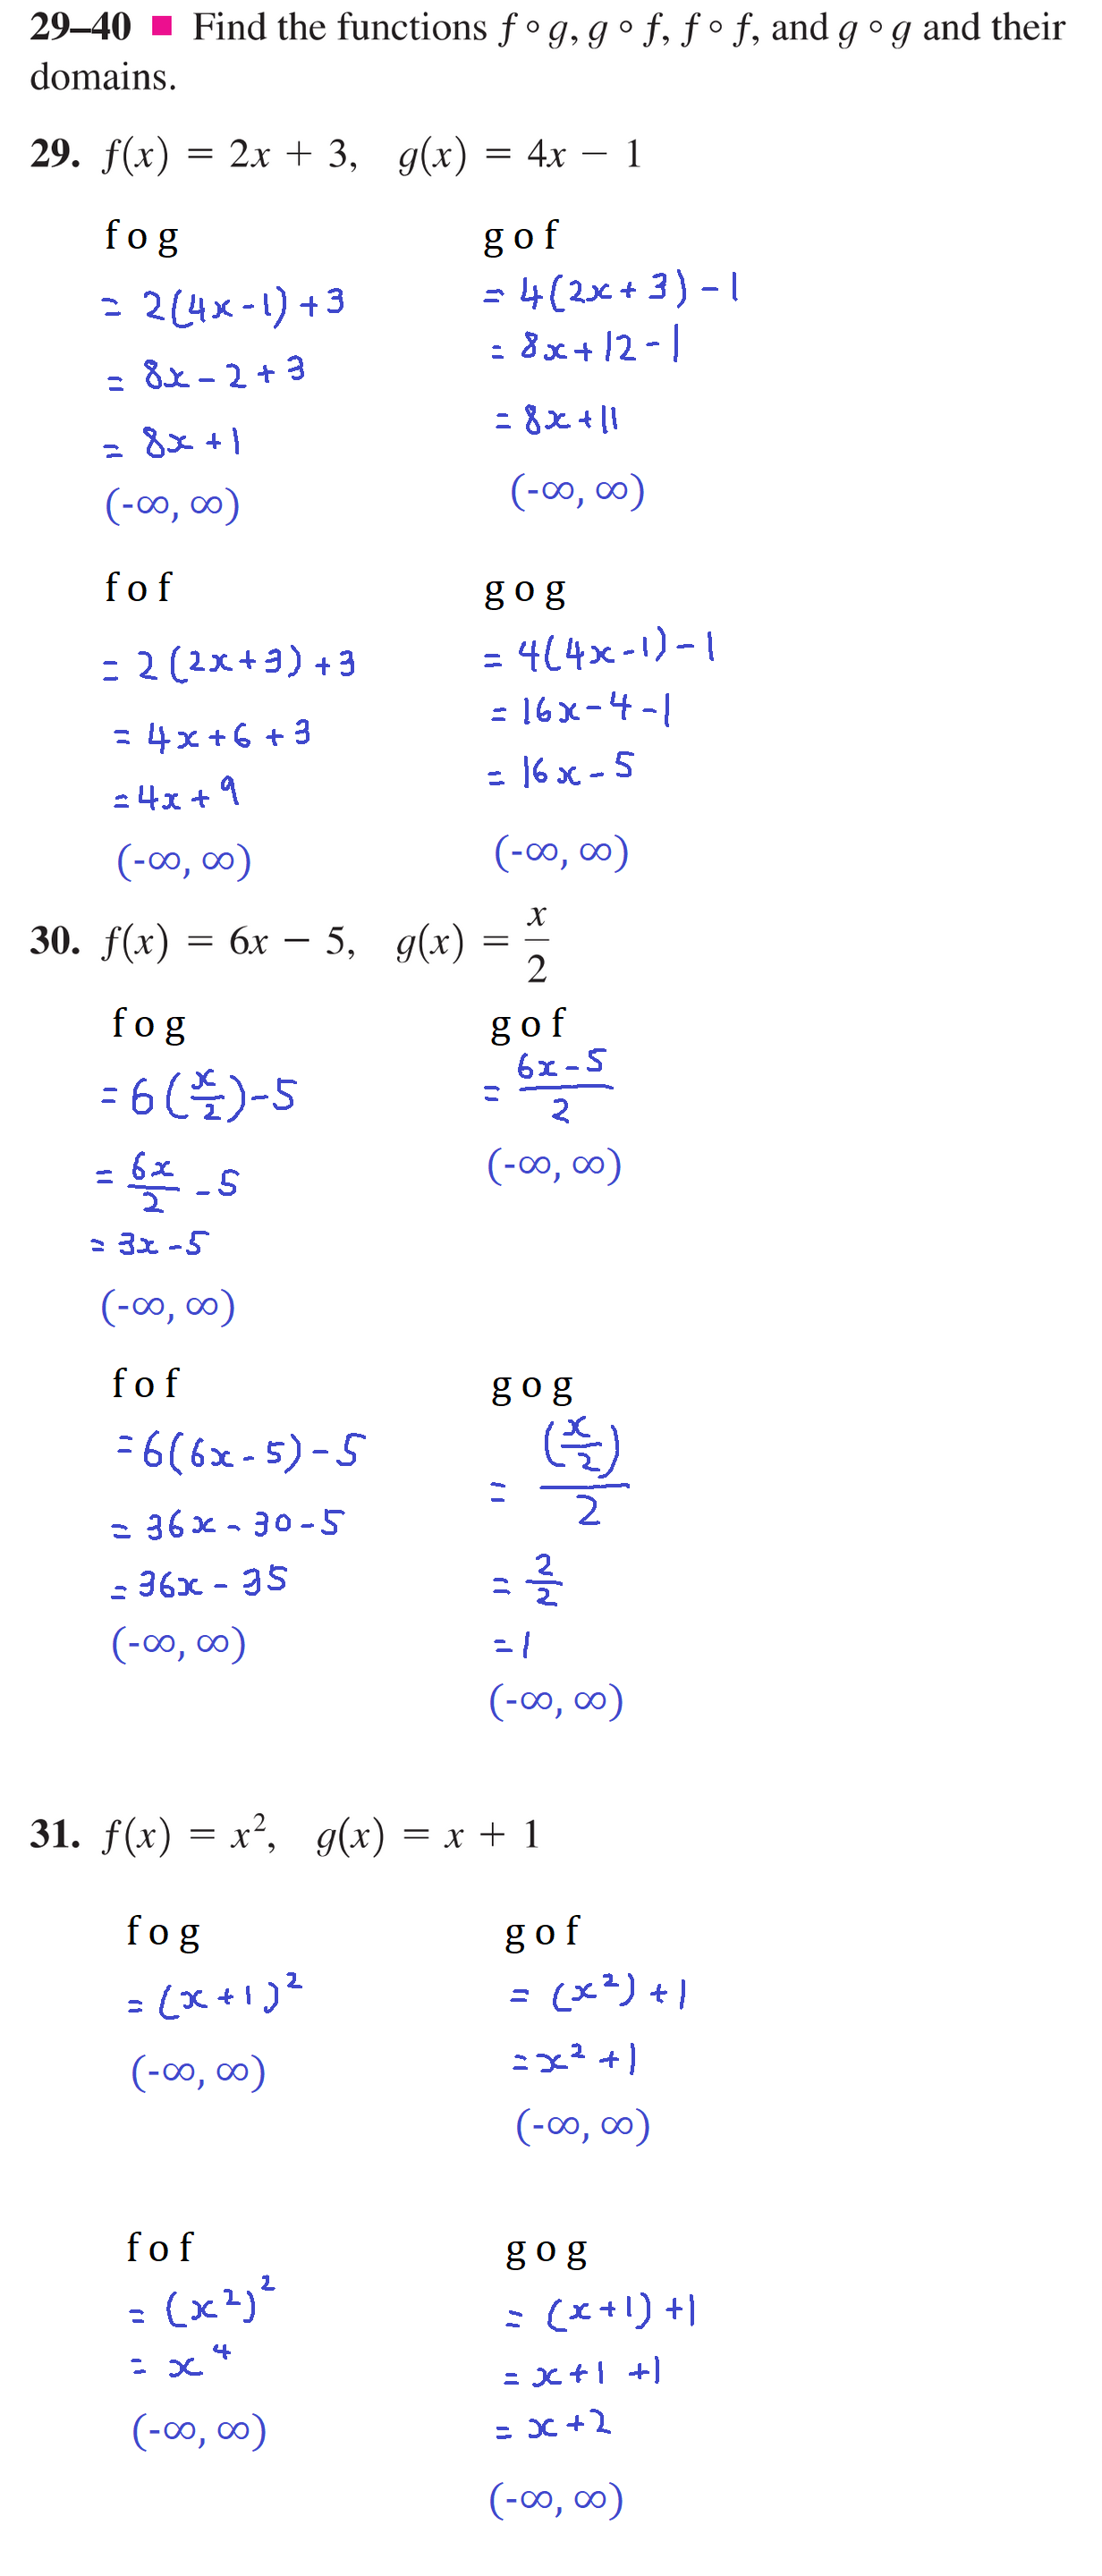 29–40 ■ Find the functions f ∘ g, g ∘ f, f ∘ f, and g ∘ g and their
domains.
29. f(x) = 2x + 3, g(x) = 4x − 1
f o g
= 2(4x-1)+3
= 8x-2+3
= 8x+1
(-∞, ∞)
g o f
= 4(2x+3)-1
= 8x+12-1
= 8x+11
(-∞, ∞)
f o f
= 2(2x+3)+3
= 4x+6+3
= 4x+9
(-∞, ∞)
g o g
= 4(4x-1)-1
= 16x-4-1
= 16x-5
(-∞, ∞)
30. f(x) = 6x − 5, g(x) = x/2
f o g
= 6(x/2)-5
= 6x/2 - 5
= 3x-5
(-∞, ∞)
g o f
= (6x-5)/2
(-∞, ∞)
f o f
= 6(6x-5)-5
= 36x-30-5
= 36x-35
(-∞, ∞)
g o g
= (x/2)/2
= 2/2
= 1
(-∞, ∞)
31. f(x) = x², g(x) = x + 1
f o g
= (x+1)²
(-∞, ∞)
g o f
= (x²)+1
= x²+1
(-∞, ∞)
f o f
= (x²)²
= x⁴
(-∞, ∞)
g o g
= (x+1)+1
= x+1+1
= x+2
(-∞, ∞)